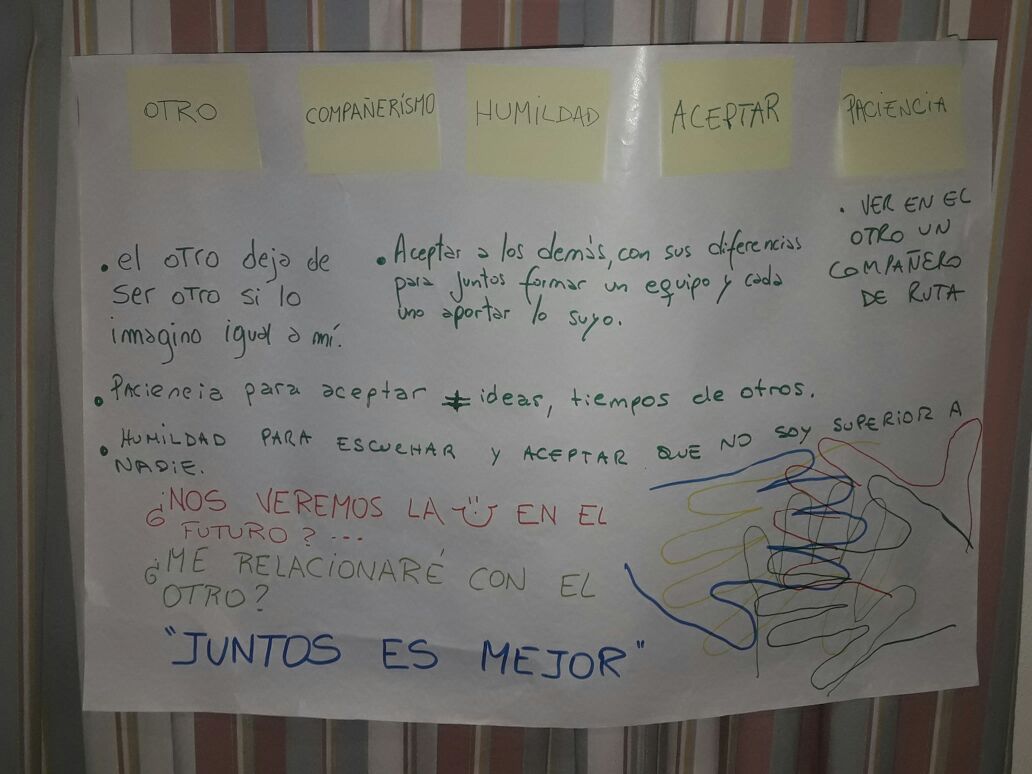 OTRO
COMPAÑERÍSMO
HUMILDAD
ACEPTAR
PACIENCIA
• el otro deja de
ser otro si lo
imagino igual a mí.
• Aceptar a los demás, con sus diferencias
para juntos formar un equipo y cada
uno aportar lo suyo.
• VER EN EL
OTRO UN
COMPAÑERO
DE RUTA
• Paciencia para aceptar ≠ ideas, tiempos de otros.
• HUMILDAD PARA ESCUCHAR Y ACEPTAR QUE NO SOY SUPERIOR A
NADIE.
¿NOS VEREMOS LA EN EL
FUTURO?...
¿ME RELACIONARÉ CON EL
OTRO?
"JUNTOS ES MEJOR"